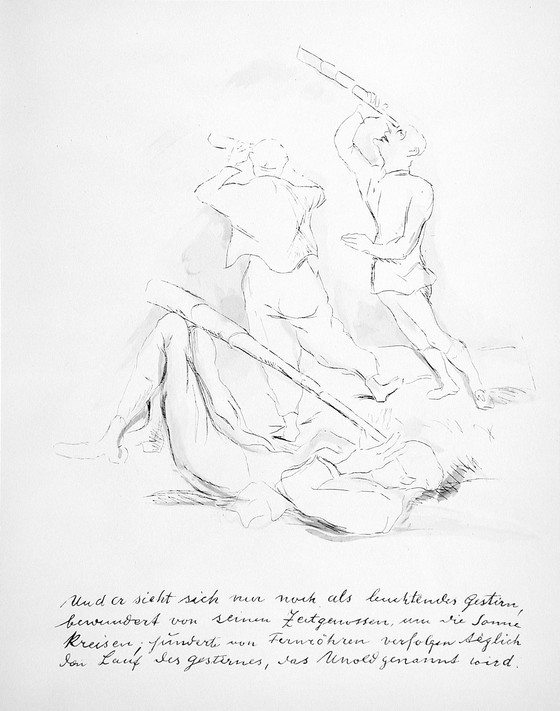 Und er sieht sich nur noch als leuchtendes Gestirn,
bewundert von seinen Zeitgenossen, um die Sonne
kreisen, hunderte von Fernröhren verfolgen täglich
den Lauf des Gesternes, das Unold genannt wird.